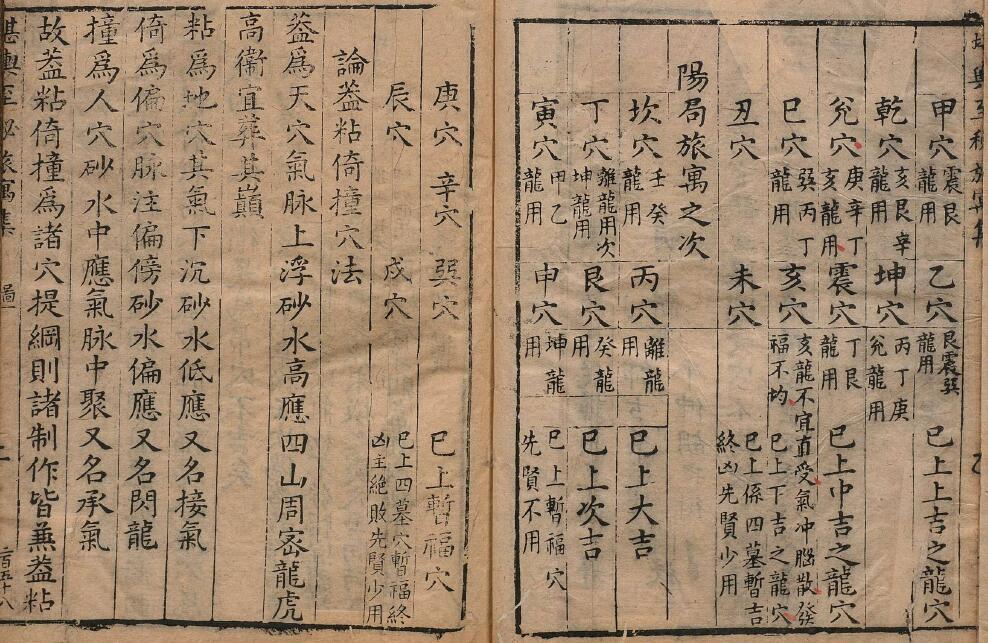 甲穴 震艮龍用 乙穴 艮震巽龍用 已上上吉之龍穴
乾穴 亥艮辛龍用 坤穴 丙丁庚兊龍用
兊穴 庚辛丁亥龍用 震穴 丁艮龍用 已上中吉之龍穴
巳穴 巽丙丁龍用 亥穴 亥龍不宜直受氣冲腦散發福不均 已上下吉之龍穴
丑穴 未穴 已上係四墓暫吉終凶先賢少用
陽局旅寓之次
坎穴 壬癸龍用 丙穴 離龍用 已上大吉
丁穴 離龍用次坤龍用 艮穴 癸龍用 已上次吉
寅穴 甲乙龍用 申穴 坤龍用 已上暫福穴先賢不用
庚穴 辛穴 巽穴 已上暫福穴
辰穴 戍穴 已上四墓穴暫福終凶主絶敗先賢少用
論葢粘倚撞穴法
葢爲天穴氣脉上浮砂水高應四山周宻龍虎
高衛宜葬其巔
粘爲地穴其氣下沉砂水低應又名接氣
倚爲偏穴脉注偏傍砂水偏應又名閃龍
撞爲人穴砂水中應氣脉中聚又名承氣
故葢粘倚撞爲諸穴提綱則諸制作皆兼葢粘
堪輿至秘旅寓集